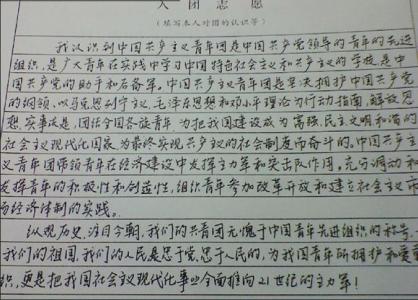 入团志愿
(填写本人对团的认识等)
我认识到中国共产主义青年团是中国共产党领导的青年的先进
组织,是广大青年在实践中学习中国特色社会主义和共产主义的学校,是中
国共产党的助手和后备军。中国共产主义青年团是坚决拥护中国共产党
的纲领,以马克思列宁主义、毛泽东思想和邓小平理论为行动指南,解放思
想,实事求是,团结全国各族青年,为把我国建设成为富强民主文明和谐的
社会主义现代化国家,为最终实现共产主义的社会制度而奋斗的。中国共产主
义青年团带领青年在经济建设中发挥主力军和突击队作用,充分调动和
发挥青年的积极性和创造性,组织青年参加改革开放和建立社会主义市
场经济体制的实践。
纵观历史,注目今朝,我们的共青团无愧于中国青年先进组织的称号。
我们的祖国,我们的人民是忠于党,忠于人民的,为我国青年所拥护和爱戴
织,更是把我国社会主义现代化事业全面推向21世纪的主力军!